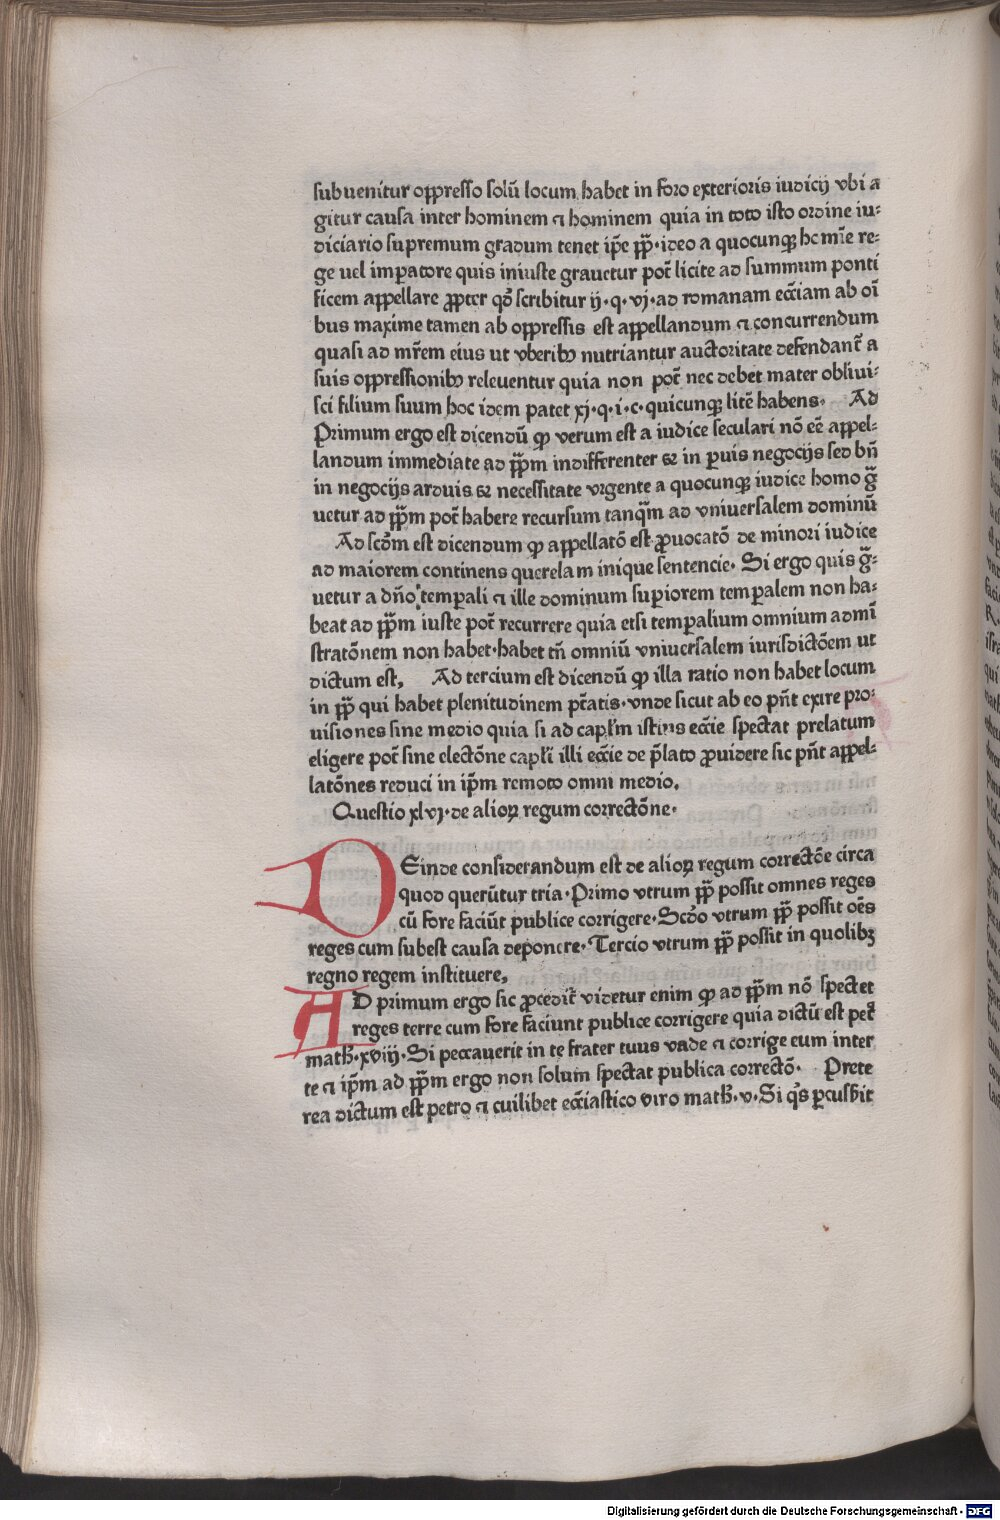 subuenitur oppresso solū locum habet in foro exterioris iudicij vbi a
gitur causa inter hominem ⁊ hominem quia in toto isto ordine iu⸗
diciario supremum gradum tenet ip̄e pp̄·ideo a quocunqꝫ hcmīe re⸗
ge uel impatore quis iniuste grauetur pot̄ licite ad summum ponti
ficem appellare ꝓpter qd̄ scribitur ij·q·vj·ad romanam ecc̄iam ab oī
bus maxime tamen ab oppressis est appellandum ⁊ concurrendum
quasi ad mr̄em eius ut vberibꝫ nutriantur auctoritate defendant̄ a
suis oppressionibꝫ releuentur quia non pot̄ nec debet mater obliui⸗
sci filium suum hoc idem patet xj·q·i·c·quicunqꝫ litē habens· Ad
Primum ergo est dicendū ꝙ verum est a iudice seculari nō eē appel⸗
landum immediate ad pp̄m indifferenter ⁊ in ꝑuis negocijs sed bn̄
in negocijs arduis ⁊ necessitate vrgente a quocunqꝫ iudice homo gͣ
uetur ad pp̄m pot̄ habere recursum tanqͣm ad vniuersalem dominū
Ad scd̄m est dicendum ꝙ appellatō est ꝓuocatō de minori iudice
ad maiorem continens querelam inique sentencie· Si ergo quis gͣ⸗
uetur a dn̄o temꝑali ⁊ ille dominum suꝑiorem temꝑalem non ha⸗
beat ad pp̄m iuste pot̄ recurrere quia etsi temꝑalium omnium admī
stratōnem non habet·habet tn̄ omniū vniuersalem iurisdictōem ut
dictum est, Ad tercium est dicendū ꝙ illa ratio non habet locum
in pp̄ qui habet plenitudinem ptā̄tis·vnde sicut ab eo pn̄t exire pro⸗
uisiones sine medio quia si ad capl̄m istius ecc̄ie spectat prelatum
eligere pot̄ sine electōne capl̄i illi ecc̄ie de p̄lato ꝓuidere sic pn̄t appel⸗
latōnes reduci in ip̄m remoto omni medio,
Questio xlvj·de alioꝝ regum correctōne·
DEinde considerandum est de alioꝝ regum correctōe circa
quod querūtur tria·Primo vtrum pp̄ possit omnes reges
cū fore faciūt publice corrigere·Scd̄o vtrum pp̄ possit oēs
reges cum subest causa deponere·Tercio vtrum pp̄ possit in quolibꝫ
regno regem instituere,
AD primum ergo sic ꝓcedit̄ videtur enim ꝙ ad pp̄m nō spectet
reges terre cum fore faciunt publice corrigere quia dictū est pet̄
math̄·xviij·Si peccauerit in te frater tuus vade ⁊ corrige eum inter
te ⁊ ip̄m ad pp̄m ergo non solum spectat publica correctō· Prete
rea dictum est petro ⁊ cuilibet ecc̄iastico viro math̄·v·Si qͥs ꝑcusserit
Digitalisierung gefördert durch die Deutsche Forschungsgemeinschaft - DFG